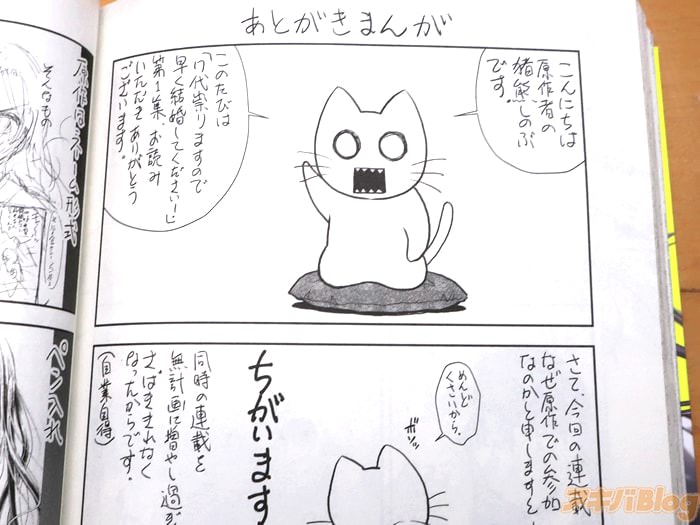 あとがきまんが
こんにちは
原作者の
猪熊しのぶ
です。
このたびは
「7代祟りますので
早く結婚してください!」
第1集、お読み
いただきありがとう
ございます。
さて、今回の連載
なぜ原作での参加
なのかと申しますと
めんど
くさいから。
ボソッ
ちがいます
同時の連載を
無計画に増やし過ぎ
さばききれなく
なったからです。
(自業自得)
原作はネーム形式
そんなもの
ペン入れ
アキバBlog